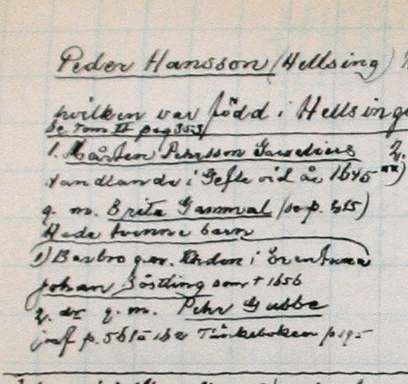 Peder Hansson (Hellsing)
hvilken var född i Hellsing
Se Tom II pag 353
1. Mårten Pehrsson Gavelius 2.
handlande i Gefle vid år 1645
g. m. Erita Gammal (se p. 315)
Hade tvenne barn
1) Barbro g.m. Khdn i Erentuna
Johan Söstling som † 1656
2. g. m. Pehr Gubbe
jmf p. 561 Tänkeboken p 195